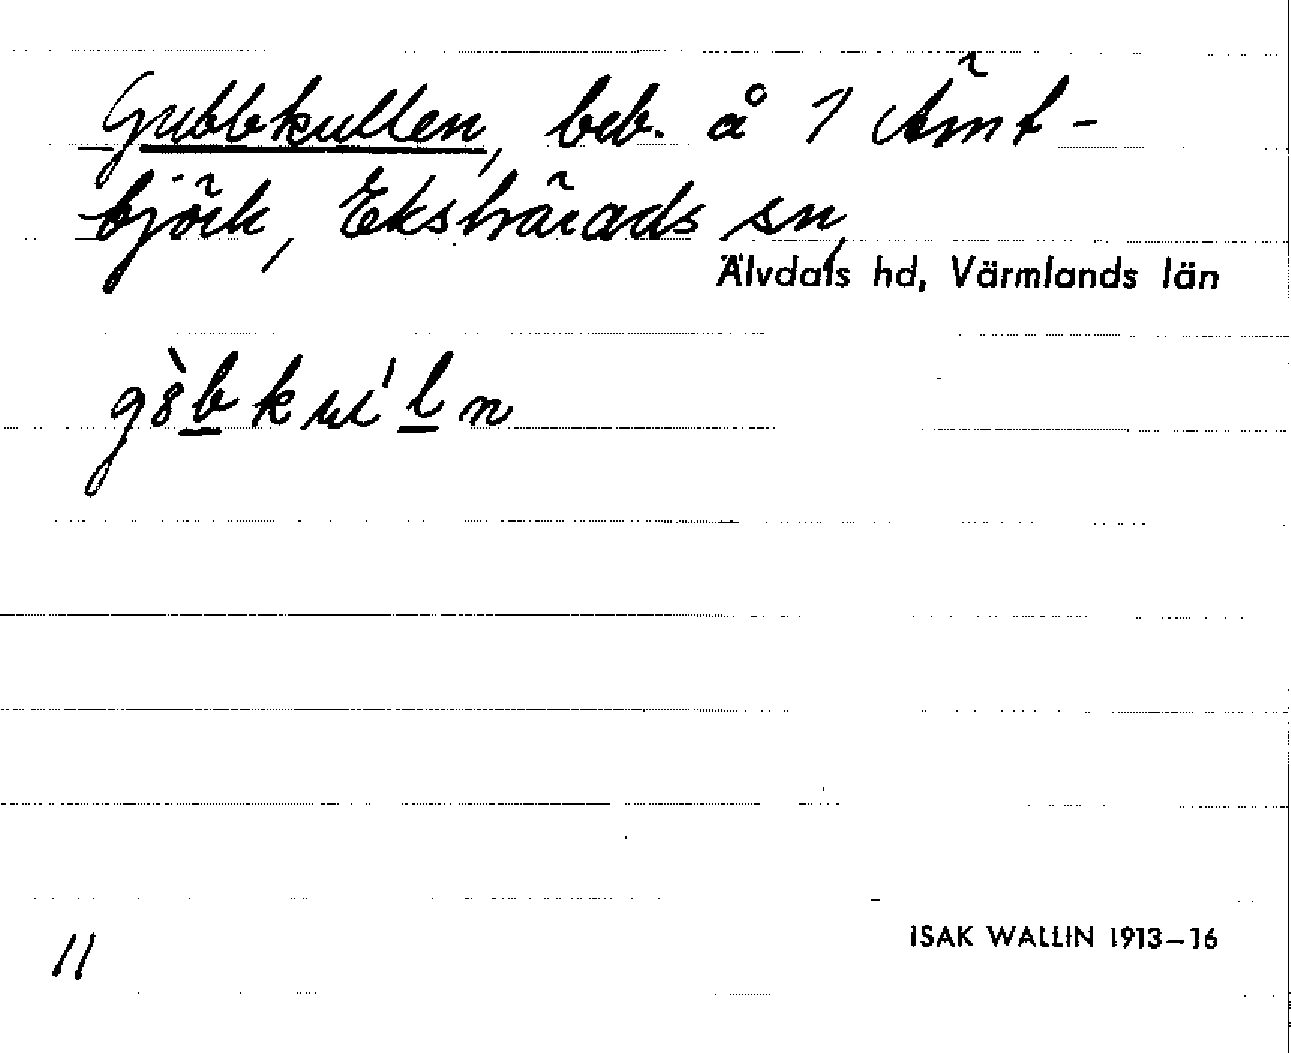 Gubbkullen, beb. å 1 Ämt-
björk, Ekshärads sn,
Älvdals hd, Värmlands län
11
ISAK WALLIN 1913–16